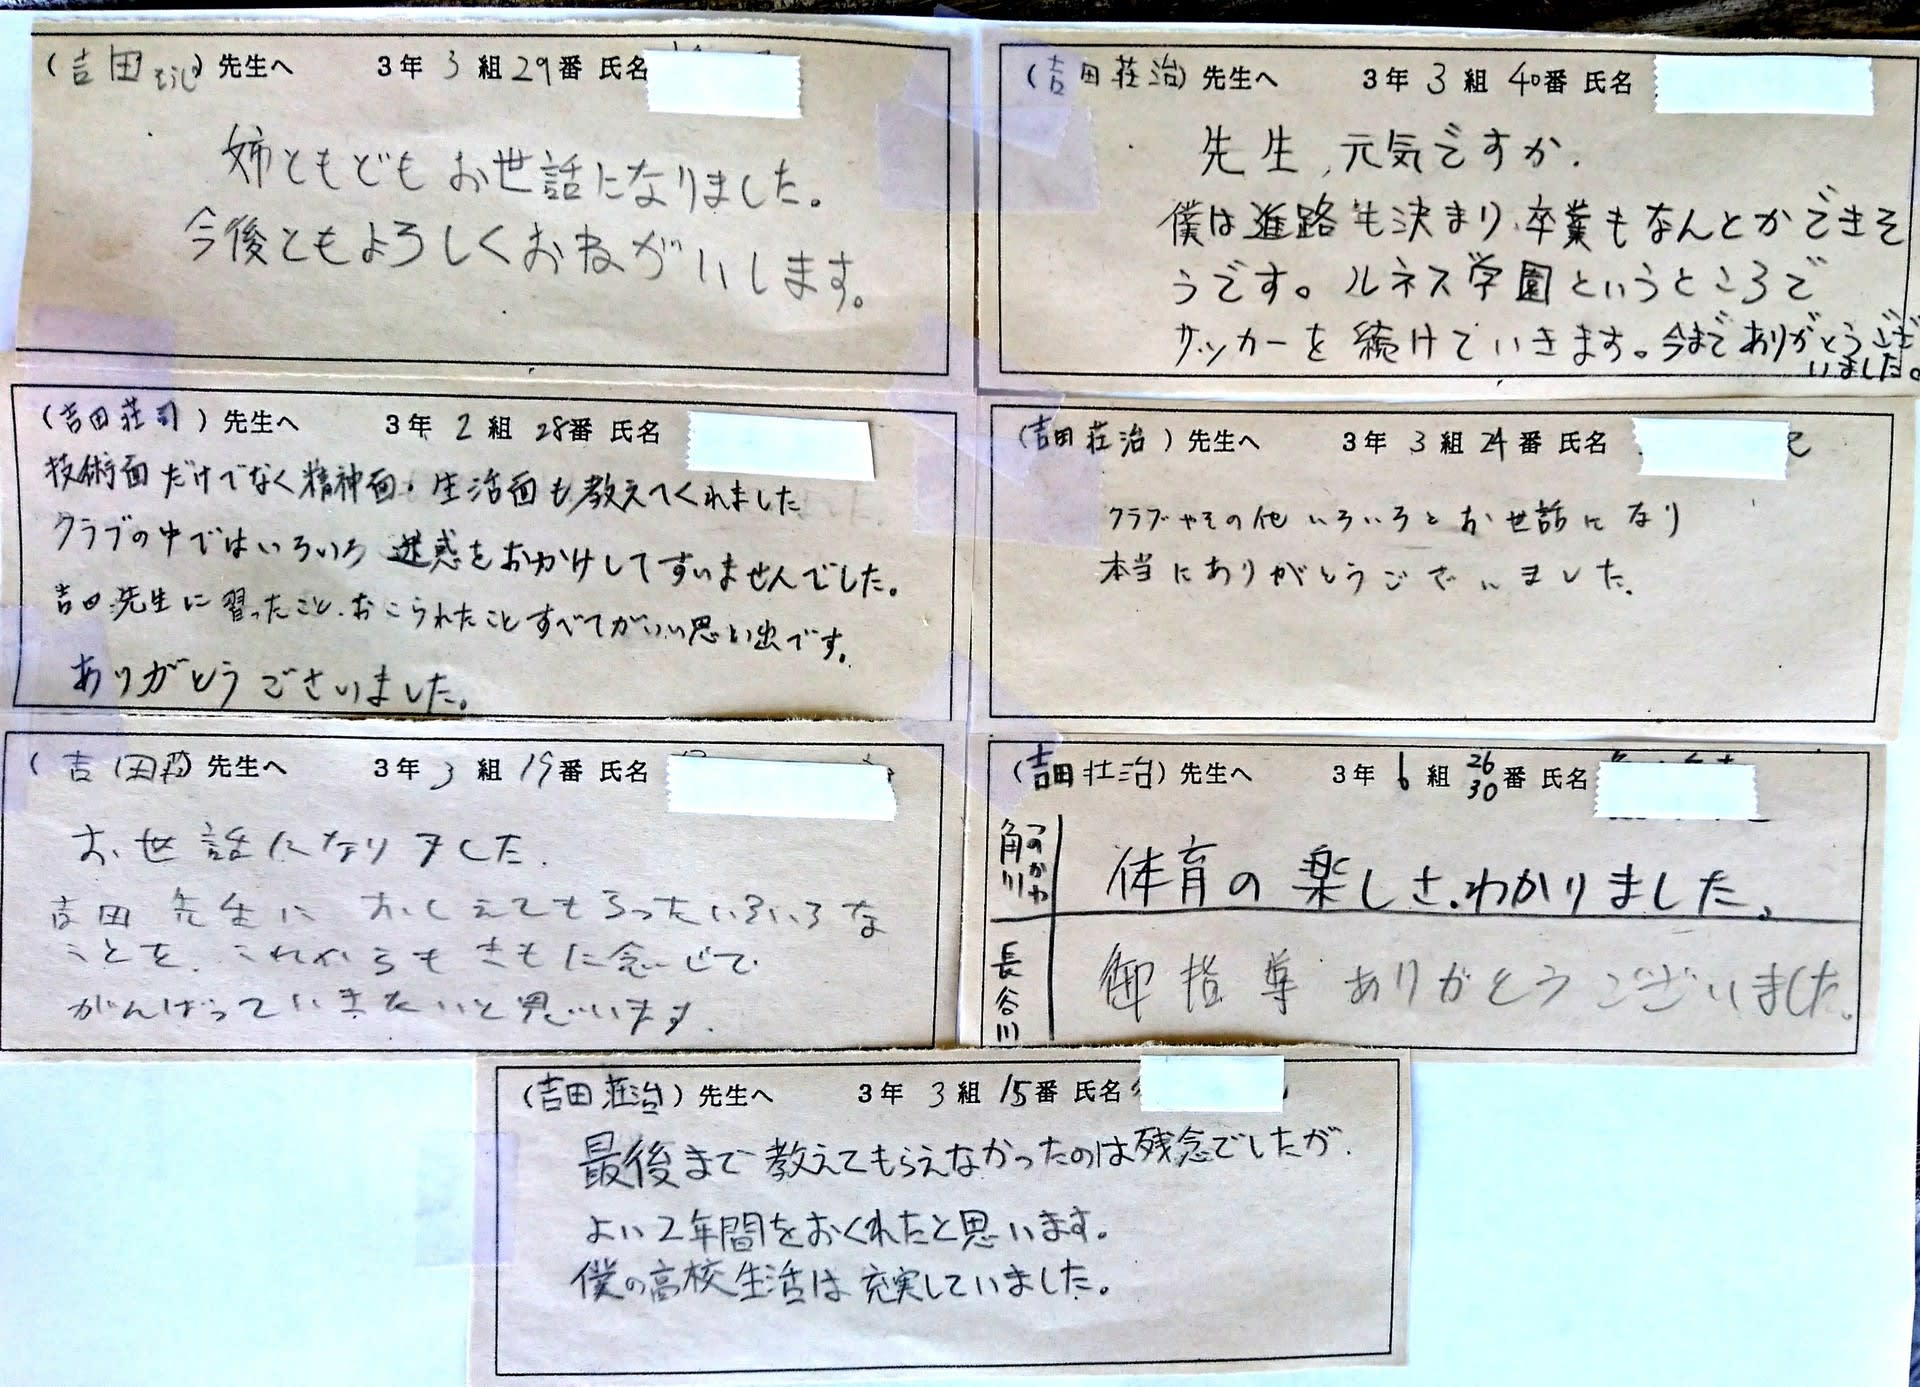 (吉田そうじ) 先生へ 3年 3 組 29番 氏名
姉ともどもお世話になりました。
今後ともよろしくおねがいします。
(吉田荘治) 先生へ 3年 3 組 40番 氏名
先生、元気ですか.
僕は進路も決まり、卒業もなんとかできそ
うです。ルネス学園というところで
サッカーを続けていきます。今までありがとうござ
いました。
(吉田荘司) 先生へ 3年 2 組 28番 氏名
技術面だけでなく精神面・生活面も教えてくれました
クラブの中ではいろいろ迷惑をおかけしてすいませんでした。
吉田先生に習ったこと、おこられたことすべてがいい思い出です。
ありがとうございました。
(吉田荘治) 先生へ 3年 3 組 24番 氏名
クラブやその他いろいろとお世話になり
本当にありがとうございました.
(吉田) 先生へ 3年 3 組 19番 氏名
お世話になりました.
吉田先生におしえてもらったいろいろな
ことを、これからもきもに念じて
がんばっていきたいと思います.
(吉田壮治) 先生へ 3年 6 組 26 30 番 氏名
角川 つのかわ 体育の楽しさ、わかりました。
長谷川 御指導ありがとうございました。
(吉田荘治) 先生へ 3年 3 組 15番 氏名
最後まで教えてもらえなかったのは残念でしたが、
よい2年間をおくれたと思います。
僕の高校生活は充実していました。